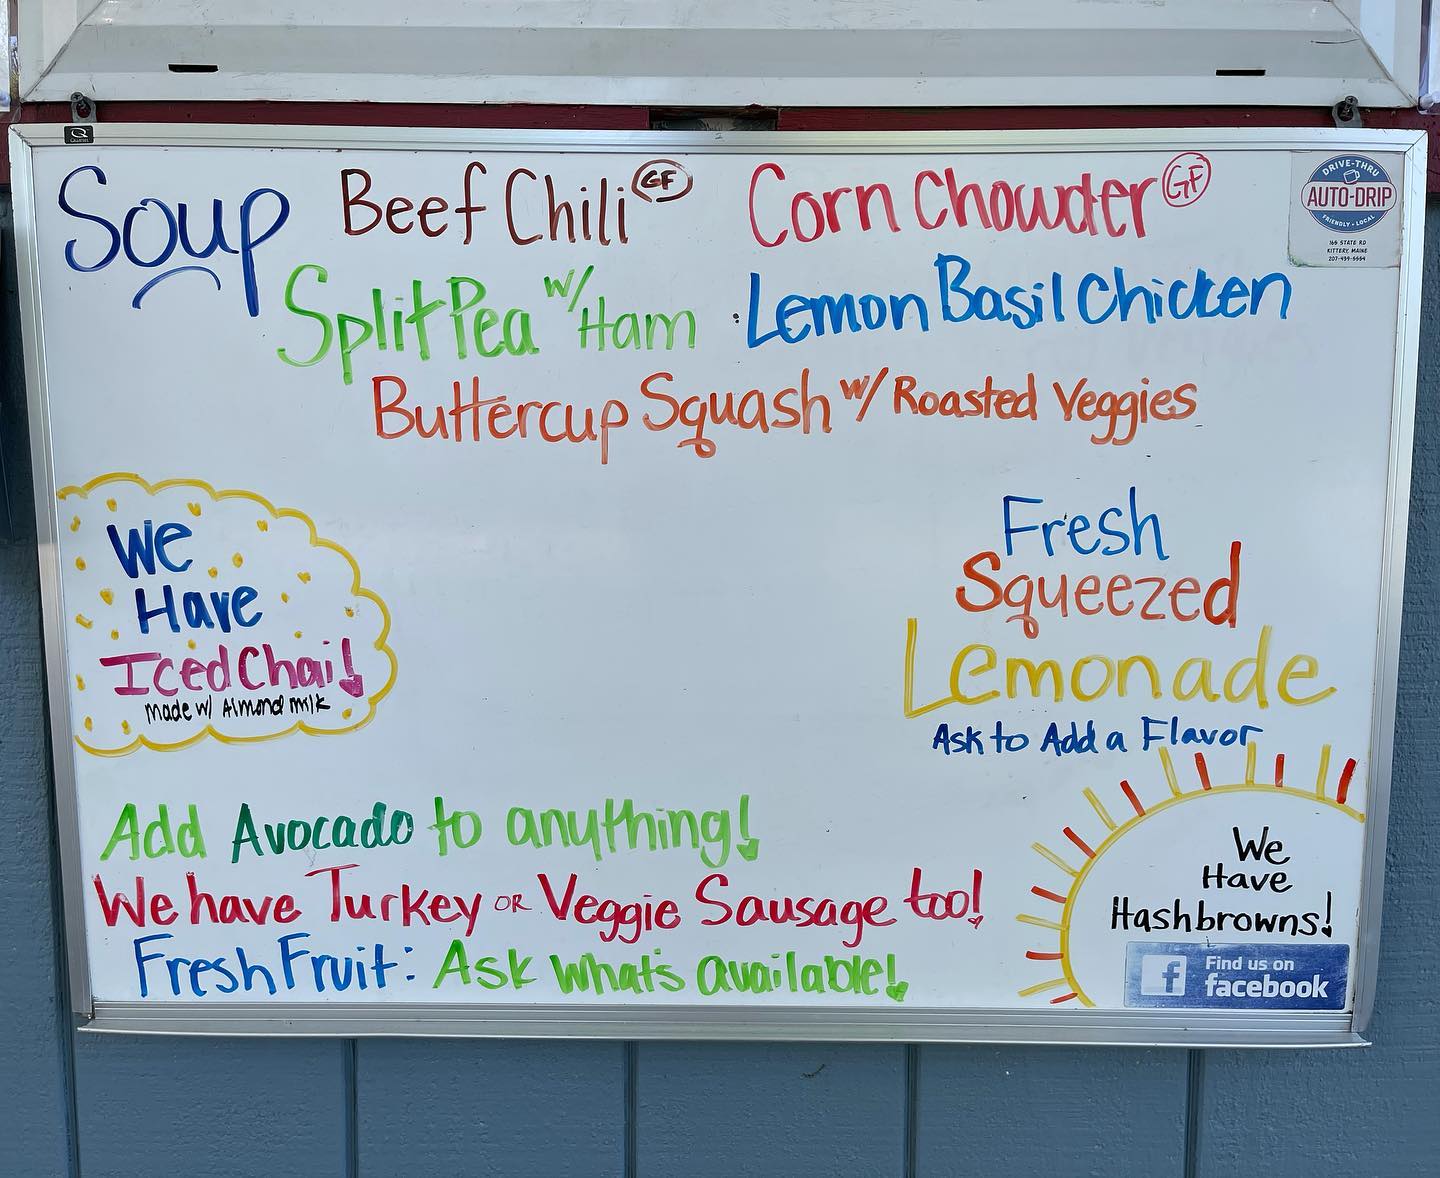 Soup
Beef Chili GF
Corn Chowder GF
Split Pea w/ Ham
Lemon Basil Chicken
Buttercup Squash w/ Roasted Veggies
DRIVE-THRU
AUTO-DRIP
FRIENDLY • LOCAL
165 STATE RD
KITTERY, MAINE
207-439-6664
We
Have
Iced Chai!
made w/ Almond milk
Fresh
Squeezed
Lemonade
Ask to Add a Flavor
Add Avocado to anything!
We have Turkey OR Veggie Sausage too!
Fresh Fruit: Ask what's available!
We
Have
Hashbrowns!
f
Find us on
facebook